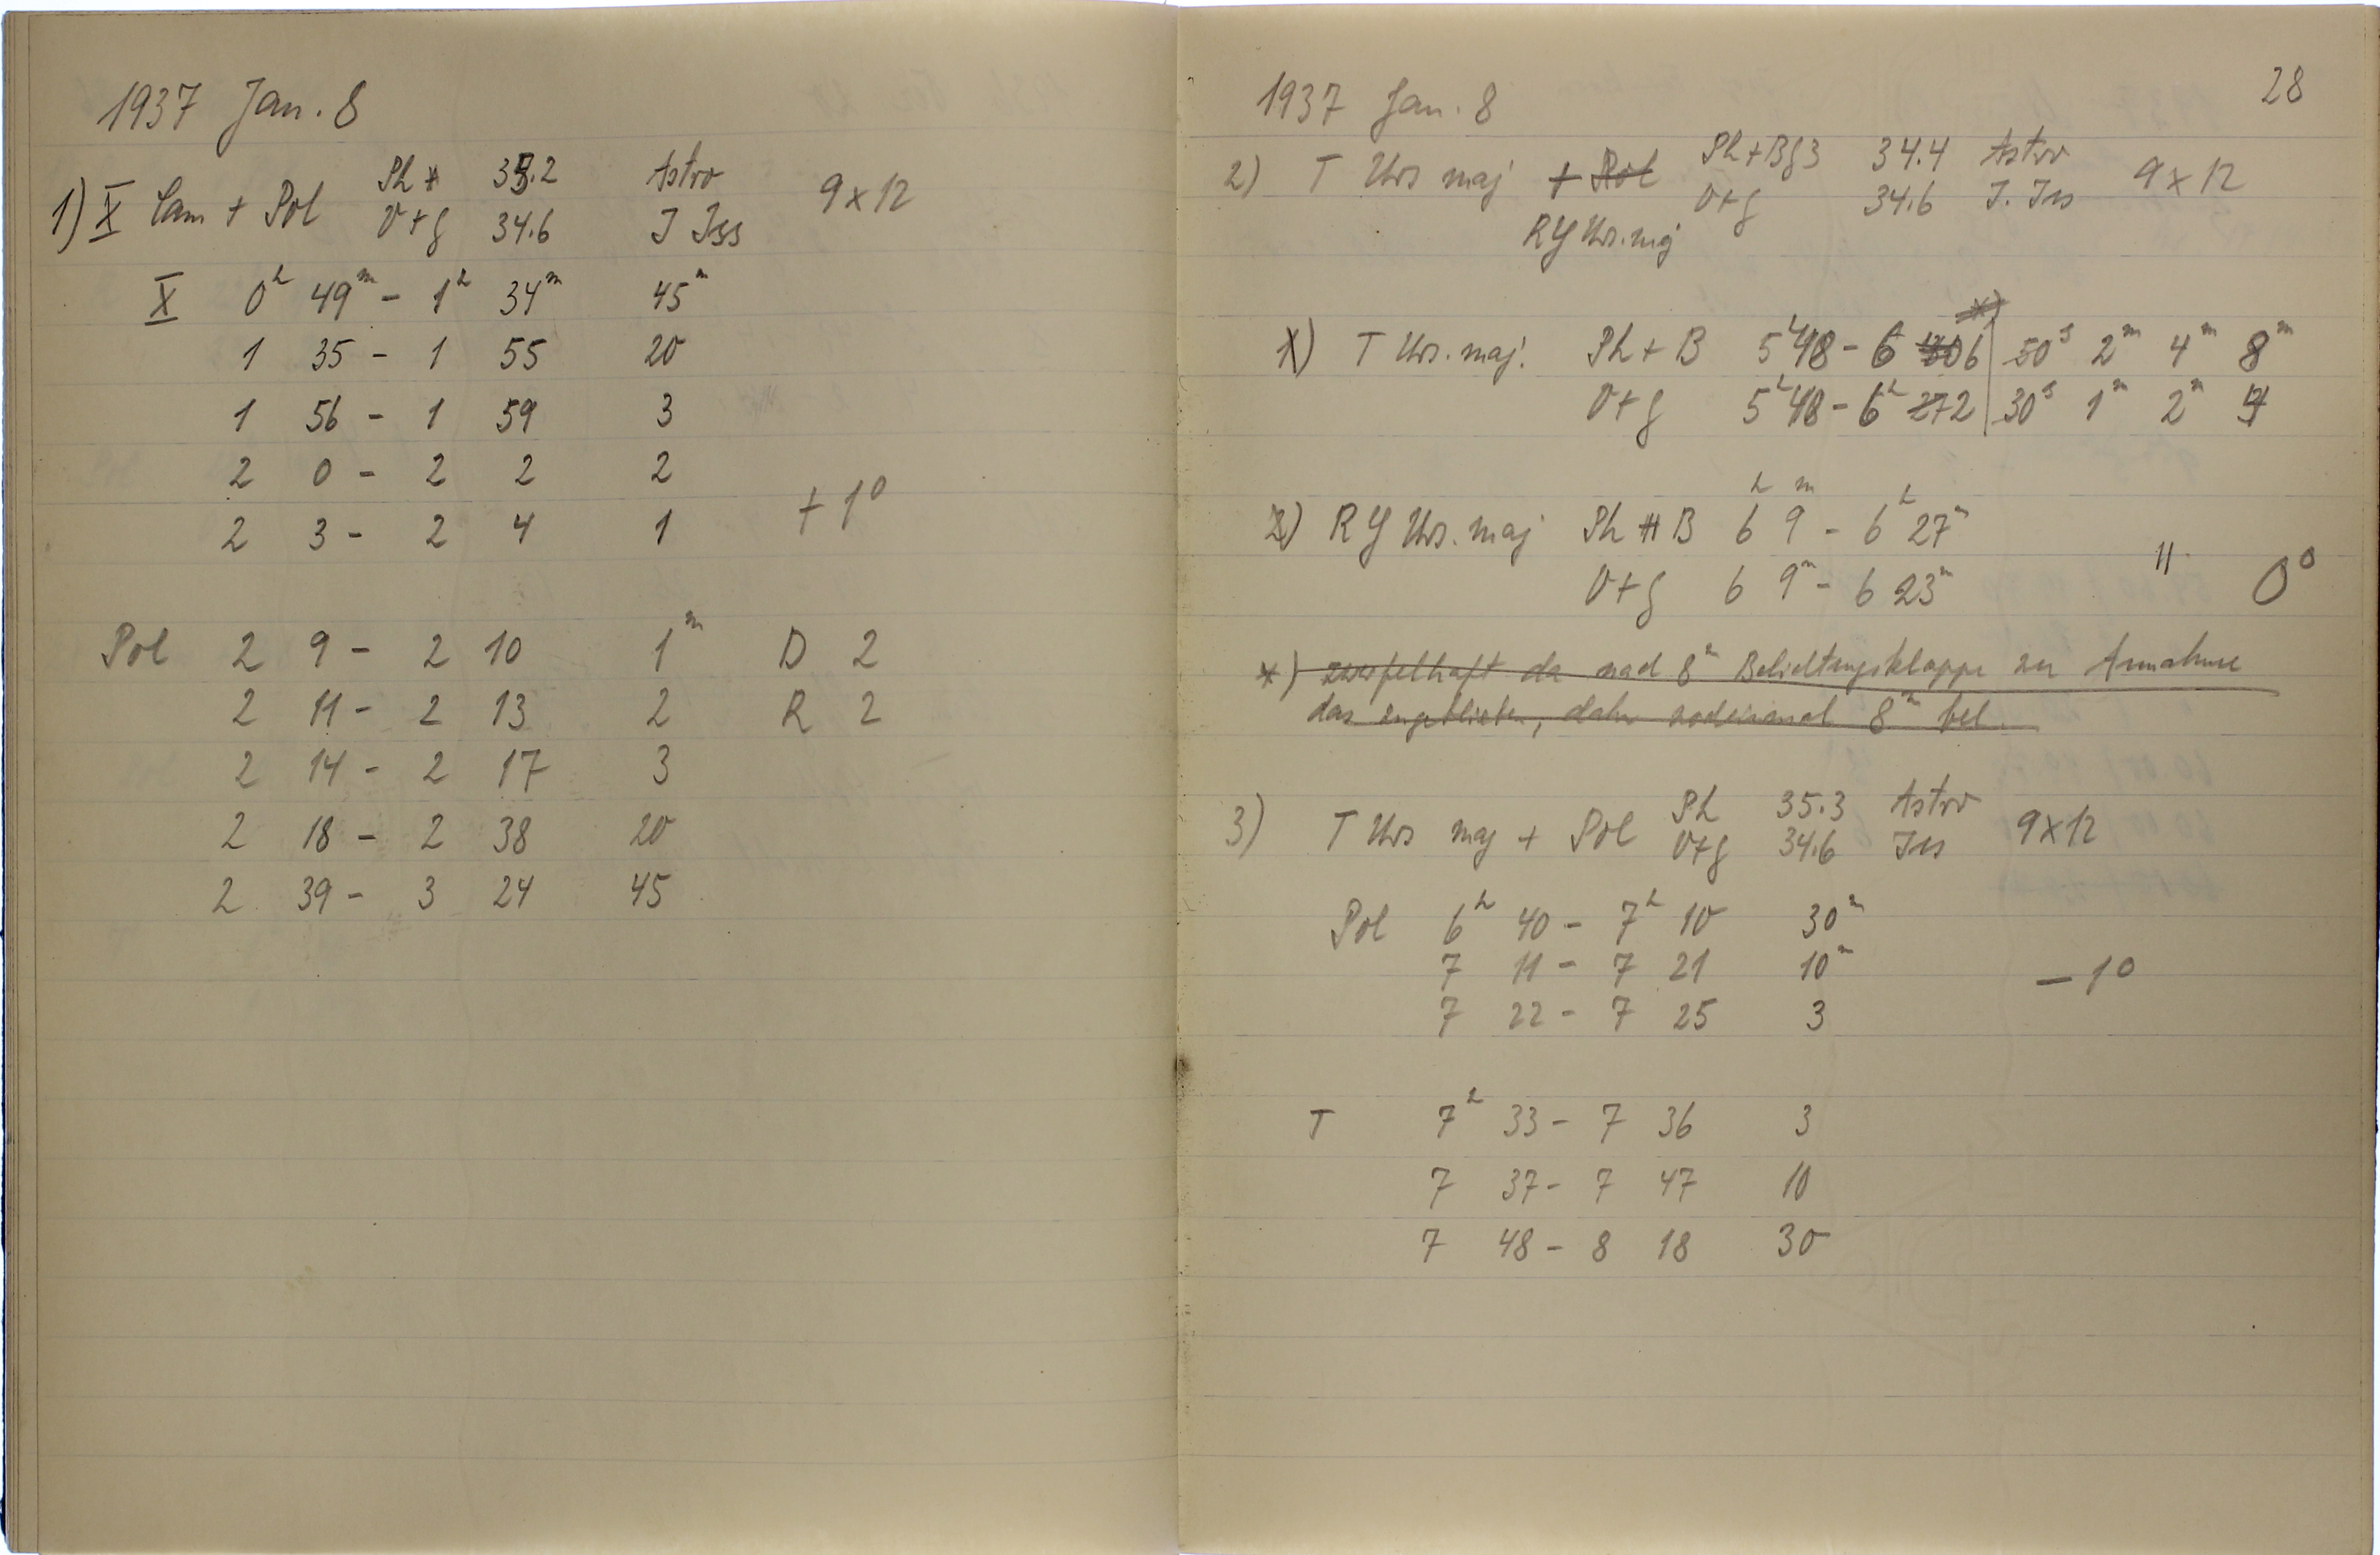 1937 Jan. 8
1) X Cam + Pol Ph 35.2 Astro 9x12
V+g 34.6 J Iss
X 0h 49m - 1h 34m 45m
1 35 - 1 55 20
1 56 - 1 59 3
2 0 - 2 2 2
+ 1°
2 3 - 2 4 1
Pol 2 9 - 2 10 1m D 2
2 11 - 2 13 2 R 2
2 14 - 2 17 3
2 18 - 2 38 20
2 39 - 3 24 45
28
1937 Jan. 8
2) T Urs maj + Pol Ph+Bg3 34.4 Astro 9x12
V+g 34.6 J. Iss
RY Urs. maj
*)
1) T Urs. maj. Ph+B 5h48 - 6 6 50s 2m 4m 8m
V+g 5h48 - 6h 2 30s 1m 2m 4
2) RY Urs. maj Ph + B 6h 9m - 6h 27m
" 0°
V+g 6 9m - 6 23m
*) zweifelhaft da nach 8m Belichtungsklappe zur Annahme
das , daher nocheinmal 8m bel.
3) T Urs maj + Pol Ph 35.3 Astro 9x12
V+g 34.6 Iss
Pol 6h 40 - 7h 10 30m
7 11 - 7 21 10m
- 1°
7 22 - 7 25 3
T 7h 33 - 7 36 3
7 37 - 7 47 10
7 48 - 8 18 30